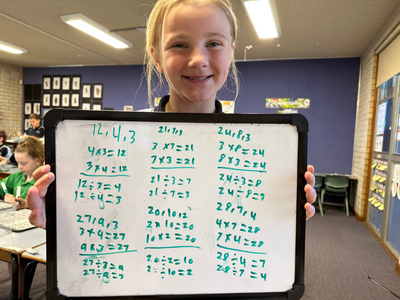 12,4,3
4×3=12
3×4=12
12÷3=4
12÷4=3
27,9,3
3×9=27
9×3=27
27÷3=9
27÷9=3
21,7,3
3×7=21
7×3=21
21÷3=7
21÷7=3
20,10,2
2×10=20
10×2=20
20÷2=10
20÷10=2
24,8,3
3×8=24
8×3=24
24÷3=8
24÷8=3
28,7,4
4×7=28
7×4=28
28÷4=7
28÷7=4